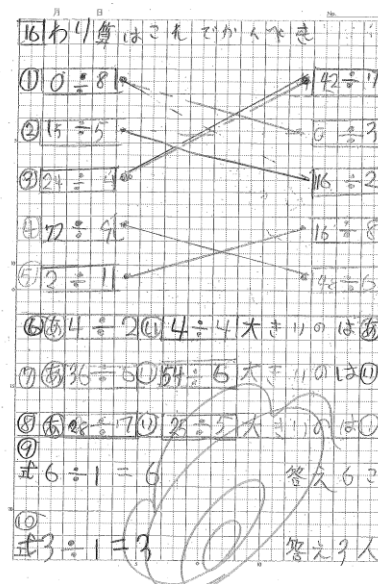 月 日 No.
16 わり算はこれでかんぺき
① 0÷8 42÷7
② 15÷5 0÷3
③ 24÷4 16÷2
④ 72÷9 16÷8
⑤ 2÷1 48÷6
⑥ あ 4÷2 い 4÷4 大きいのはあ
⑦ あ 36÷6 い 54÷6 大きいのはい
⑧ あ 28÷7 い 25÷5 大きいのはい
⑨
式 6÷1=6 答え6こ
⑩
式 3÷1=3 答え3人